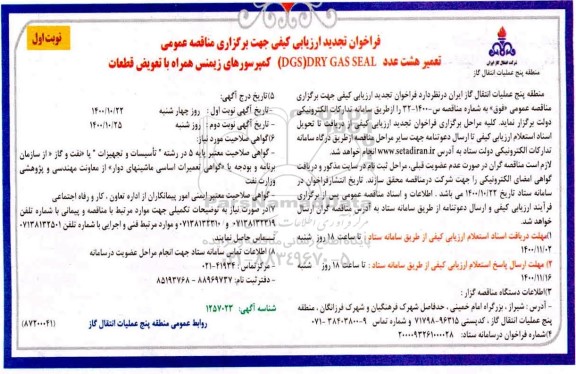 نوبت اول
فراخوان تجدید ارزیابی کیفی جهت برگزاری مناقصه عمومی
تعمیر هشت عدد DGS)DRY GAS SEAL) کمپرسورهای زیمنس همراه با تعویض قطعات
شرکت انتقال گاز ایران
منطقه پنج عملیات انتقال گاز
منطقه پنج عملیات انتقال گاز ایران درنظردارد فراخوان تجدید ارزیابی کیفی جهت برگزاری
مناقصه عمومی «فوق» به شماره مناقصه س-۱۴۰۰-۳۲ را ازطریق سامانه تدارکات الکترونیکی
دولت برگزار نماید. کلیه مراحل برگزاری فراخوان تجدید ارزیابی کیفی از دریافت تا تحویل
اسناد استعلام ارزیابی کیفی تا ارسال دعوتنامه جهت سایر مراحل مناقصه ازطریق درگاه سامانه
تدارکات الکترونیکی دولت ستاد به آدرس www.setadiran.ir انجام خواهد شد.
لازم است مناقصه گران در صورت عدم عضویت قبلی، مراحل ثبت نام در سایت مذکور و دریافت
گواهی امضای الکترونیکی را جهت شرکت درمناقصه محقق سازند. تاریخ انتشارفراخوان در
سامانه ستاد تاریخ ۱۴۰۰/۱۰/۲۲ می باشد . اطلاعات و اسناد مناقصه عمومی پس از برگزاری
فرآیند ارزیابی کیفی و ارسال دعوتنامه از طریق سامانه ستاد به آدرس مناقصه گران ارسال
خواهد شد.
۱)مهلت دریافت اسناد استعلام ارزیابی کیفی از طریق سامانه ستاد : تا ساعت ۱۸ روز شنبه
۱۴۰۰/۱۱/۰۲
۲) مهلت ارسال پاسخ استعلام ارزیابی کیفی از طریق سامانه ستاد : تا ساعت ۱۸ روز شنبه
۱۴۰۰/۱۱/۱۶
۳)اطلاعات دستگاه مناقصه گزار :
- آدرس : شیراز ، بزرگراه امام خمینی ، حدفاصل شهرک فرهنگیان و شهرک فرزانگان ، منطقه
پنج عملیات انتقال گاز ، کدپستی ۹۶۳۱۵-۷۱۷۹۸ و شماره تماس ۹-۳۸۴۰۳۸۰۰-۰۷۱
۴)شماره فراخوان درسامانه ستاد: ۲۰۰۰۰۹۳۲۶۱۰۰۰۰۲۸
۵)تاریخ درج آگهی:
- تاریخ آگهی نوبت اول : روز چهار شنبه ۱۴۰۰/۱۰/۲۲
- تاریخ آگهی نوبت دوم : روز شنبه ۱۴۰۰/۱۰/۲۵
۶)گواهی صلاحیت مورد نیاز:
- گواهی صلاحیت معتبر پایه ۵ در رشته " تأسیسات و تجهیزات " یا «نفت و گاز » از سازمان
برنامه و بودجه یا «گواهی تعمیرات اساسی ماشینهای دوار» از معاونت مهندسی و پژوهشی
وزارت نفت
- گواهی صلاحیت معتبر ایمنی امور پیمانکاران از اداره تعاون ، کار و رفاه اجتماعی
۷)در صورت نیاز به توضیحات تکمیلی جهت موارد مرتبط با مناقصه و پیمانی با شماره تلفن
۰۷۱۳۸۱۳۲۳۱۹ و ۰۷۱۳۸۱۳۲۳۱۰ و موارد مرتبط فنی و اجرایی با شماره تلفن ۰۷۱۳۸۱۳۲۵۰۱
تماس حاصل نمایند.
۸)اطلاعات تماس سامانه ستاد جهت انجام مراحل عضویت درسامانه
- مرکزتماس : ۴۱۹۳۴-۰۲۱
- دفترثبت نام: ۸۸۹۶۹۷۳۷ - ۸۵۱۹۳۷۶۸
شناسه آگهی: ۱۲۵۷۰۲۳
روابط عمومی منطقه پنج عملیات انتقال گاز
(۸۷۲۰۰۰۴۱)